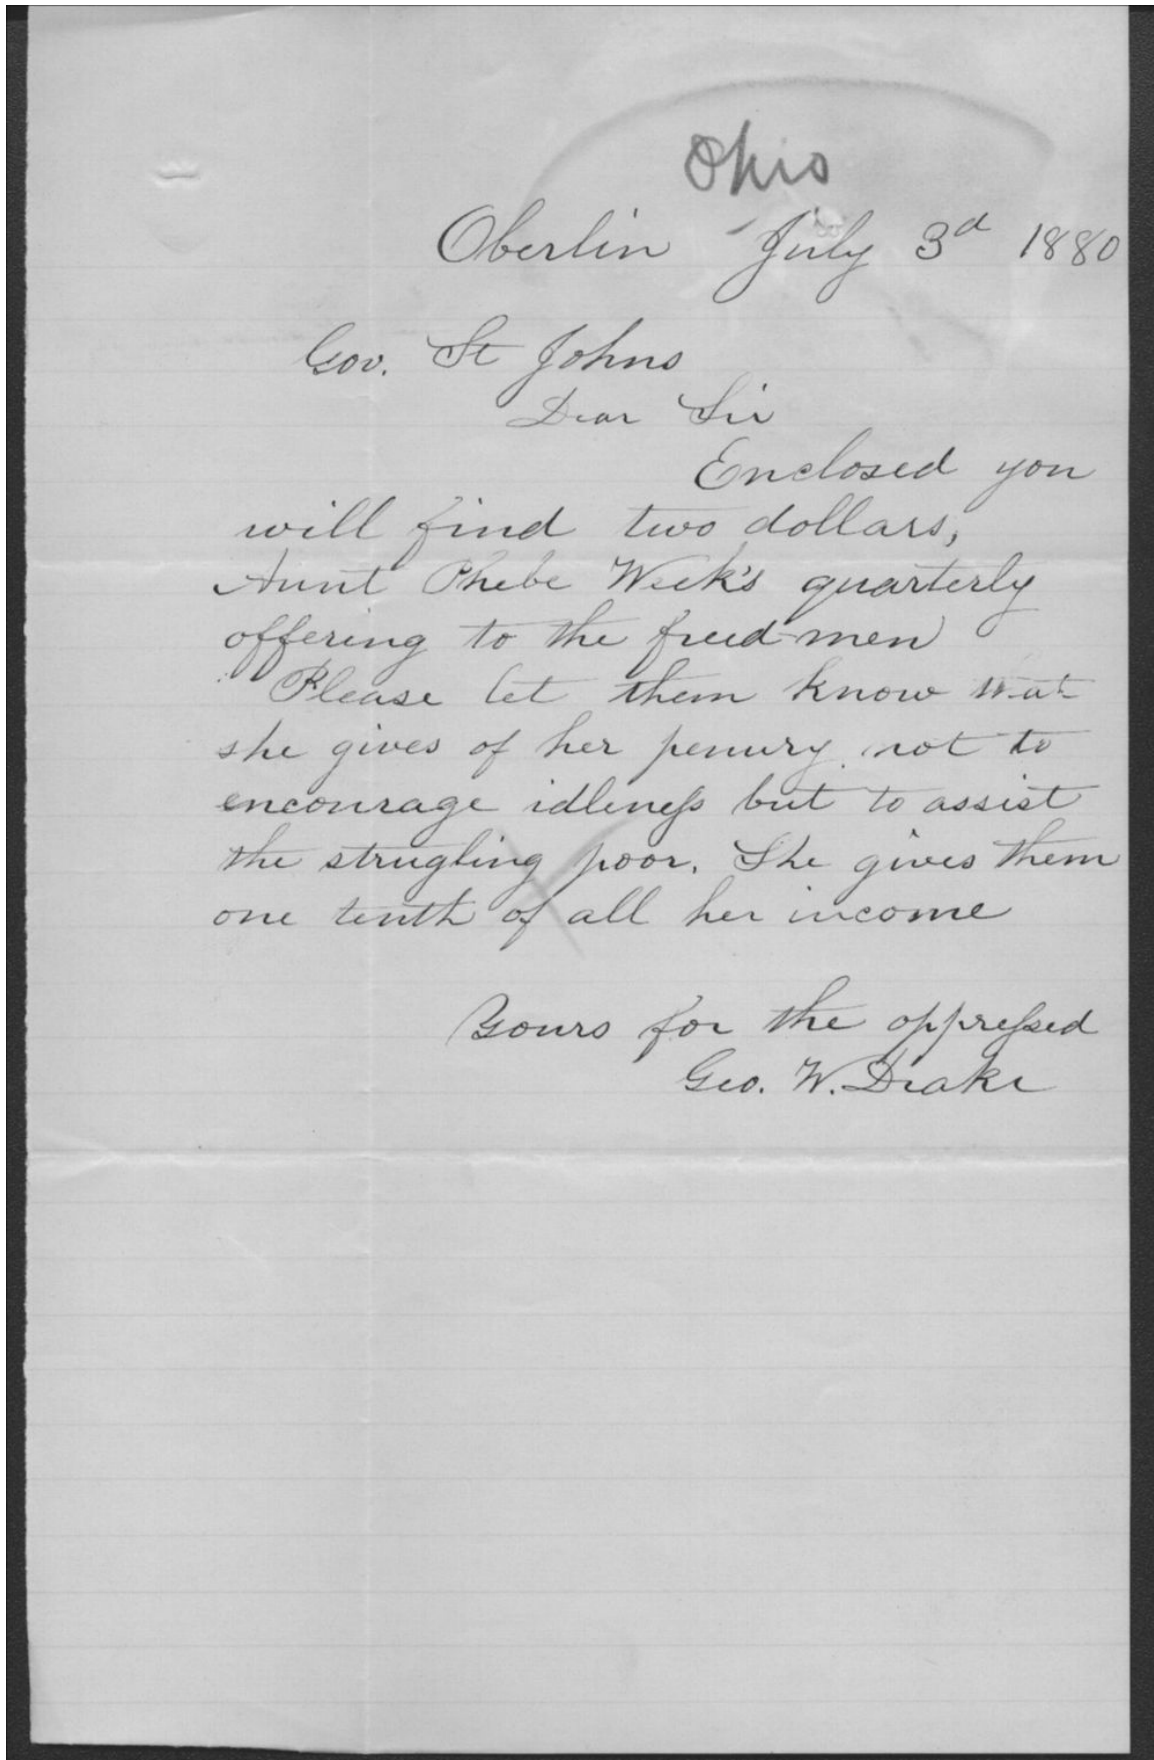 Ohio
Oberlin July 3d 1880
Gov. St Johns
Dear Sir
Enclosed you
will find two dollars,
Aunt Phebe Week's quarterly
offering to the freed-men
Please let them know that
she gives of her penury, not to
encourage idleness but to assist
the strugling poor. She gives them
one tenth of all her income
Yours for the oppressed
Geo. W. Drake